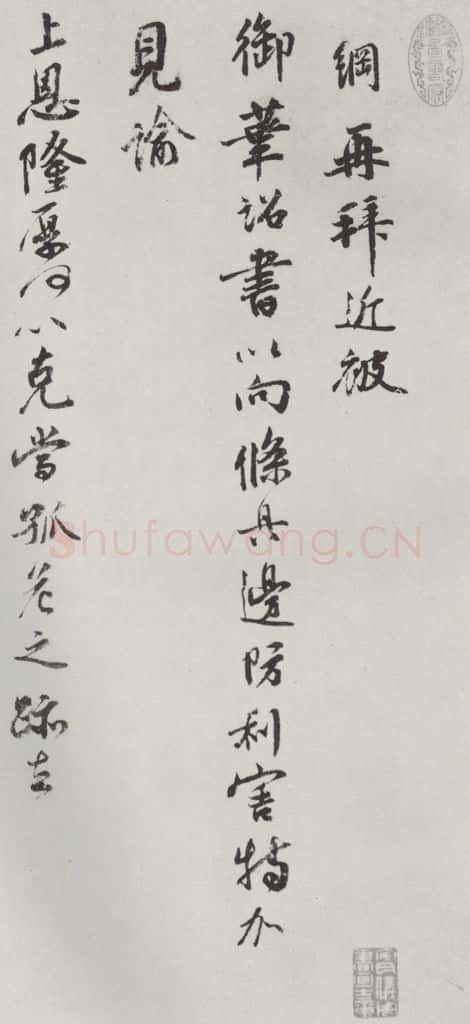 綱再拜近被
御筆詔書以向條具邊防利害特加
見諭
上恩隆厚何以克當孤危之蹤在
Shufawang.CN